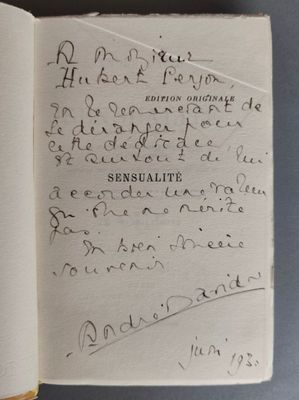 A Monsieur
Hubert Person,
EDITION ORIGINALE
en le remerciant de
se déranger pour
cette dédicace,
et surtout de lui
SENSUALITÉ
accorder une valeur
qu'elle ne mérite
pas.
En bien sincère
souvenir
André David
juin 193